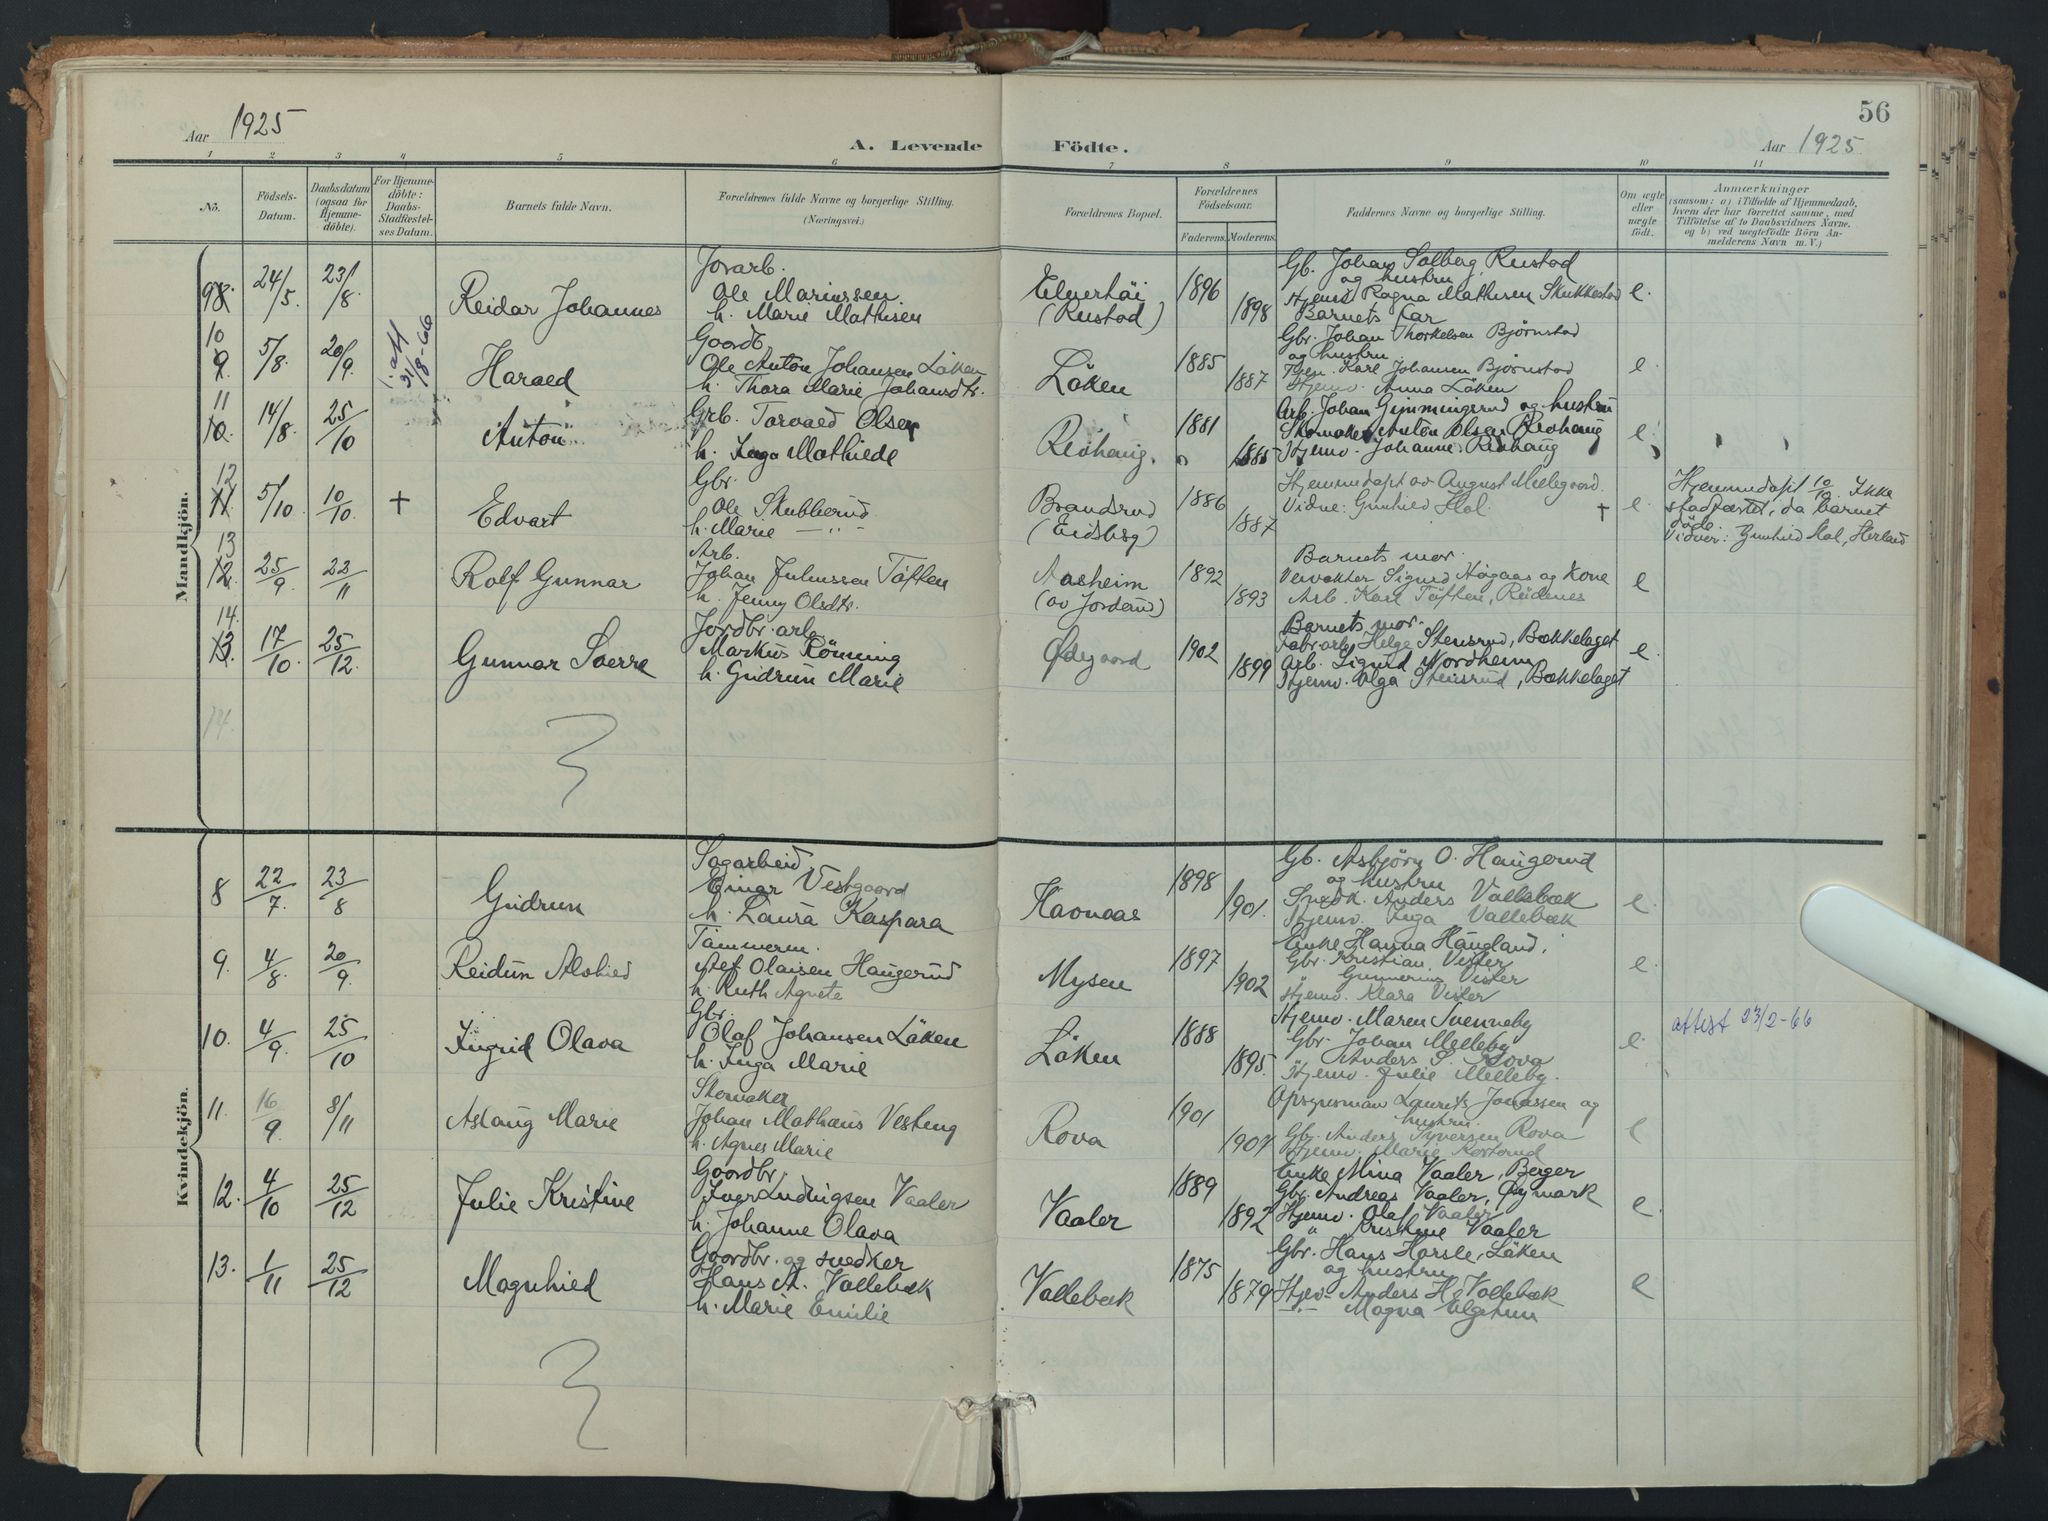 56
Aar 1925
A. Levende Födte.
Aar 1925
1 2 3 4 5 6 7 8 9 10 11
Nö.
Födsels-Datum.
Daabsdatum (ogsaa for Hjemme-döbte).
For Hjemme-döbte: Daabs-Stadfæstel-ses Datum.
Barnets fulde Navn.
Forældrenes fulde Navne og borgerlige Stilling. (Næringsvei.)
Forældrenes Bopæl.
Forældrenes Födselsaar.
Faderens. Moderens.
Faddernes Navne og borgerlige Stilling.
Om ægte eller uægte födt.
Anmærkninger
(saasom: a) i Tilfælde af Hjemmedaab, hvem der har forrettet samme, med Tilföielse af to Daabsvidners Navne, og b) ved uægtefödte Börn An-melderens Navn m. V.)
Mandkjön.
9 24/5. 23/8. Reidar Johannes
Ole Mariussen.
h. Marie Mathisen
(Rustad)
1896 1898
Gb. Johan Solberg, Rustad
og hustru
Hjemv. Ragna Mathisen
Barnets far
e.
10 5/8. 20/9 att 31/8-66 Harald
Gaardb.
Ole Anton Johansen Löken
h. Thora Marie Johansdtr.
Löken
1885 1887
Gbr. Johan Thorkelsen Bjørnstad
og hustru
Tjen. Karl Johansen Bjørnstad
Hjemv. Anna Löken
e.
11 14/8. 25/10 Anton
Torvald Olsen
h. Inga Mathilde
1881 1885
Arb. Johan Gimmingsrud og hustru
Skomaker Anton Olsen
Hjemv. Johanne
e.
12 5/10 10/10 + Edvart
Gbr.
Ole Skubberud.
h. Marie —"—
Brandsrud
(Eidsbg)
1886 1887
Hjemmedøpt av August Mellegaard.
Vidne: Gunhild Hol. +
e.
Hjemmedøpt 10/10. Ikke
stadfæstet, da barnet
døde.
Vidner: Gunhild Hol, Herland
13 25/9 22/11 Rolf Gunnar
Arb.
Johan Juliussen Töften
h. Jenny Olsdtr.
Aasheim
1892 1893
Barnets mor.
Sigurd Høgaas og Kone
Arb. Karl Töften, Rödenes
e
14. 17/10. 25/12. Gunnar Sverre
Jordbr. arb.
Markus Rönning
h. Gudrun Marie
Ødegaard
1902 1899
Barnets mor.
Fabr.arb. Helge Stensrud, Bækkelaget
Arb. Sigurd Nordheim
Hjemv. Olga Stensrud, Bækkelaget
e.
14.
Kvindekjön.
8 22/7. 23/8 Gudrun
Sagarbeid.
Einar Vestgaard
h. Laura Kaspara
Havnaas
1898 1901.
Gb. Asbjörn O. Haugerud
og hustru
Snedk. Anders Vallebæk
Hjemv. Inga Vallebæk
e.
9. 4/8. 20/9. Reidun Alvhild
Tömmerm.
Alf Olaisen Haugerud
h. Ruth Agnete
Mysen
1897 1902
Enke Hanna Haugland.
Gbr. Kristian Vister
" Vister
Hjemv. Klara Vister
e.
10. 4/9. 25/10 Ingrid Olava
Gbr.
Olaf Johansen Löken
h. Inga Marie
Löken
1888 1895.
Hjemv. Maren Svenneby
Gbr. Johan Melleby
Anders S. Rova
Hjemv. Julie Melleby.
e.
attest 23/2-66
11. 16/9. 8/11 Aslaug Marie
Skomaker
Johan Mathæus Vesteng
h. Agnes Marie
Rova
1901 1907
Opsynsman Laurits Jonassen og
hustru.
Gbr. Anders Syversen Rova
Hjemv. Marie
e
12. 4/10 25/12 Julie Kristine
Gaardbr.
Iver Ludvigsen Vaaler
h. Johanne Olava
Vaaler
1889 1892
Enke Mina Vaaler, Berger
Gbr. Andreas Vaaler, Øymark
Hjemv. Olaf Vaaler
" Kristine Vaaler
e.
13. 1/11 25/12 Magnhild
Gaardbr. og snedker
Hans A. Vallebæk
h. Marie Emilie
Vallebæk
1875 1879
Gbr. Hans Harsle, Löken
og hustru
Hjev. Anders H. Vallebæk
—"— Magna
e